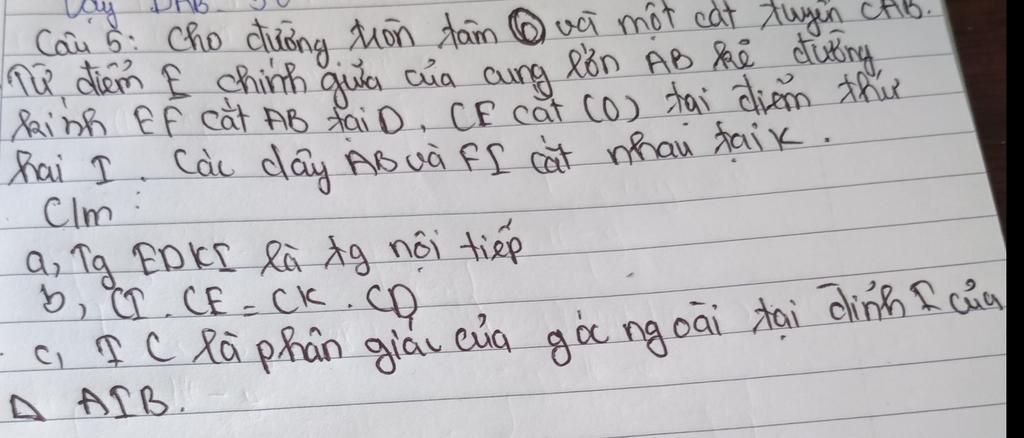 Vậy DAB
Câu 5: Cho đường tròn tâm O và một cát tuyến CAB.
Từ điểm E chính giữa của cung lớn AB kẻ đường
kính EF cắt AB tại D, CE cắt (O) tại điểm thứ
hai I. Các dây AB và FI cắt nhau tại K.
C/m:
a, Tg EDKI là tg nội tiếp
b, CI. CE = CK. CD
c, IC là phân giác của góc ngoài tại đỉnh I của
Δ AIB.